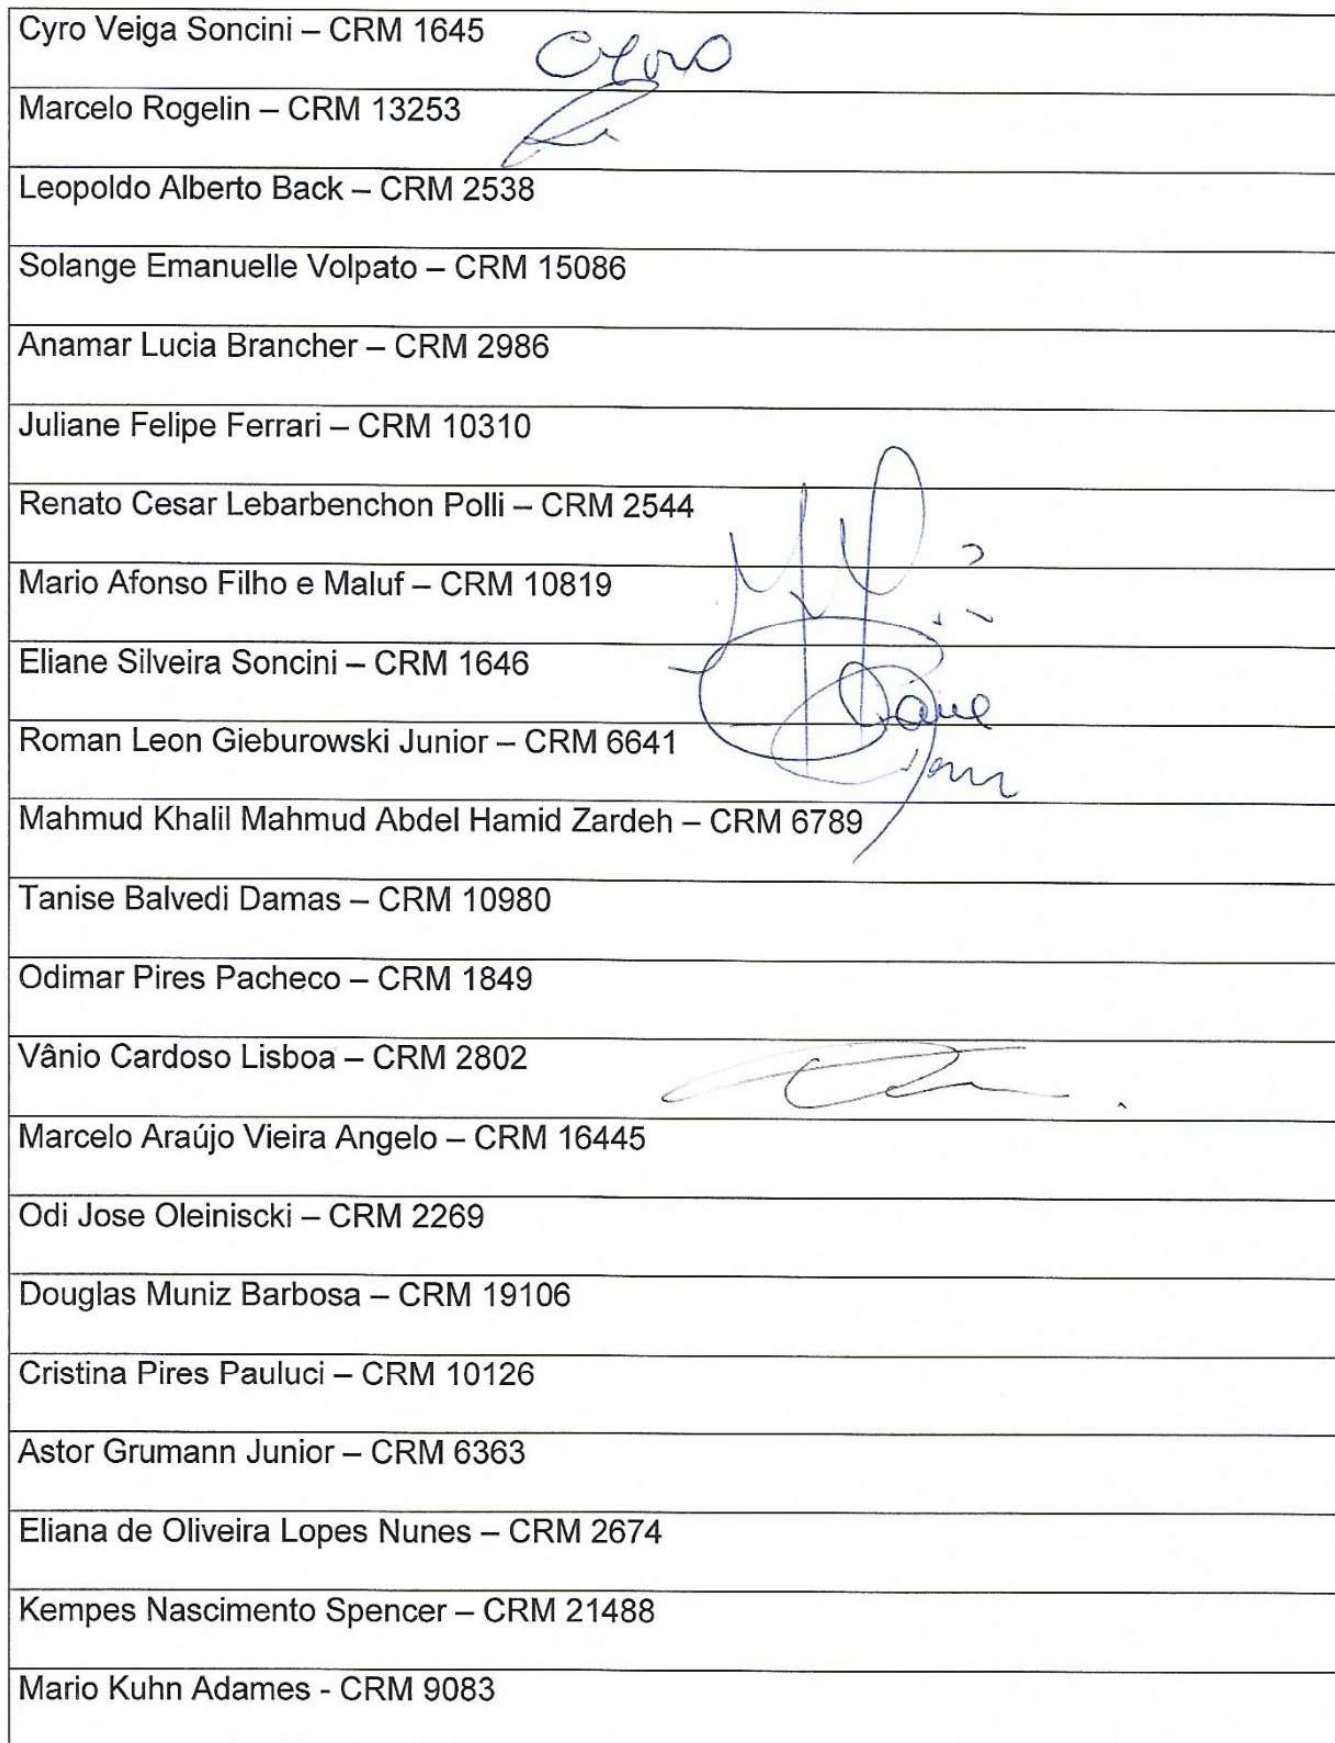 Cyro Veiga Soncini – CRM 1645
Cyro
Marcelo Rogelin – CRM 13253
Leopoldo Alberto Back – CRM 2538
Solange Emanuelle Volpato – CRM 15086
Anamar Lucia Brancher – CRM 2986
Juliane Felipe Ferrari – CRM 10310
Renato Cesar Lebarbenchon Polli – CRM 2544
Mario Afonso Filho e Maluf – CRM 10819
Eliane Silveira Soncini – CRM 1646
Roman Leon Gieburowski Junior – CRM 6641
Mahmud Khalil Mahmud Abdel Hamid Zardeh – CRM 6789
Tanise Balvedi Damas – CRM 10980
Odimar Pires Pacheco – CRM 1849
Vânio Cardoso Lisboa – CRM 2802
Marcelo Araújo Vieira Angelo – CRM 16445
Odi Jose Oleiniscki – CRM 2269
Douglas Muniz Barbosa – CRM 19106
Cristina Pires Pauluci – CRM 10126
Astor Grumann Junior – CRM 6363
Eliana de Oliveira Lopes Nunes – CRM 2674
Kempes Nascimento Spencer – CRM 21488
Mario Kuhn Adames - CRM 9083